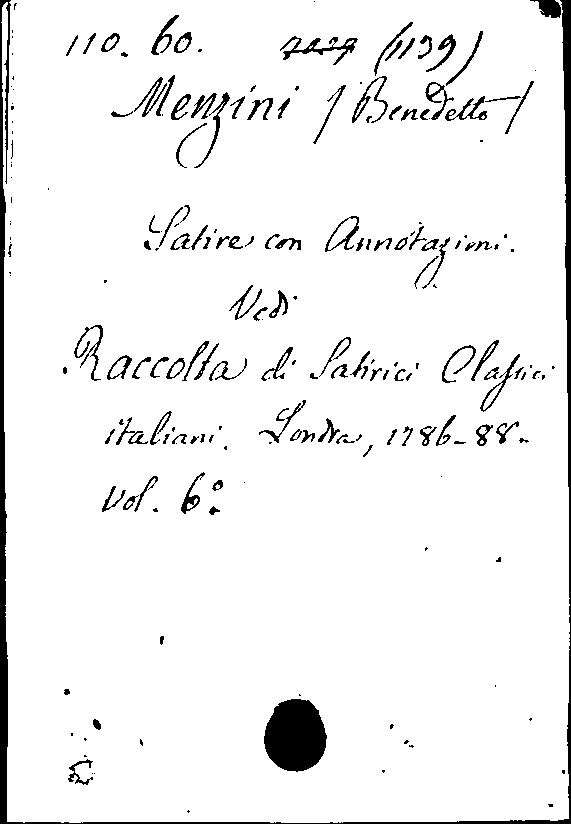 110. 60. (1139)
Menzini / Benedetto /
Satire con Annotazioni.
Vedi
Raccolta di Satirici Classici
italiani. Londra, 1786-88.
vol. 6º